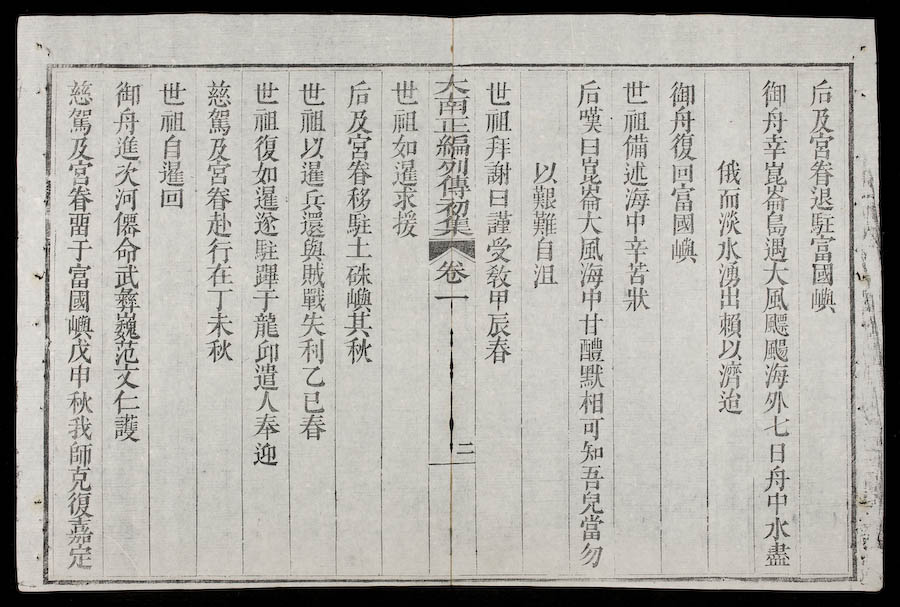 后及宮眷退駐富國嶼
御舟幸崑崙島遇大風飃颺海外七日舟中水盡
俄而淡水湧出賴以濟迨
御舟復回富國嶼
世祖備述海中辛苦狀
后嘆曰崑崙大風海中甘醴默相可知吾兒當勿
以艱難自沮
世祖拜謝曰謹受敎甲辰春
大南正編列傳初集 卷一 二
世祖如暹求援
后及宮眷移駐土硃嶼其秋
世祖以暹兵還與賊戰失利乙巳春
世祖復如暹遂駐蹕于龍邱遣人奉迎
慈駕及宮眷赴行在丁未秋
世祖自暹回
御舟進次河僊命武彝巍范文仁護
慈駕及宮眷畱于富國嶼戊申秋我師克復嘉定